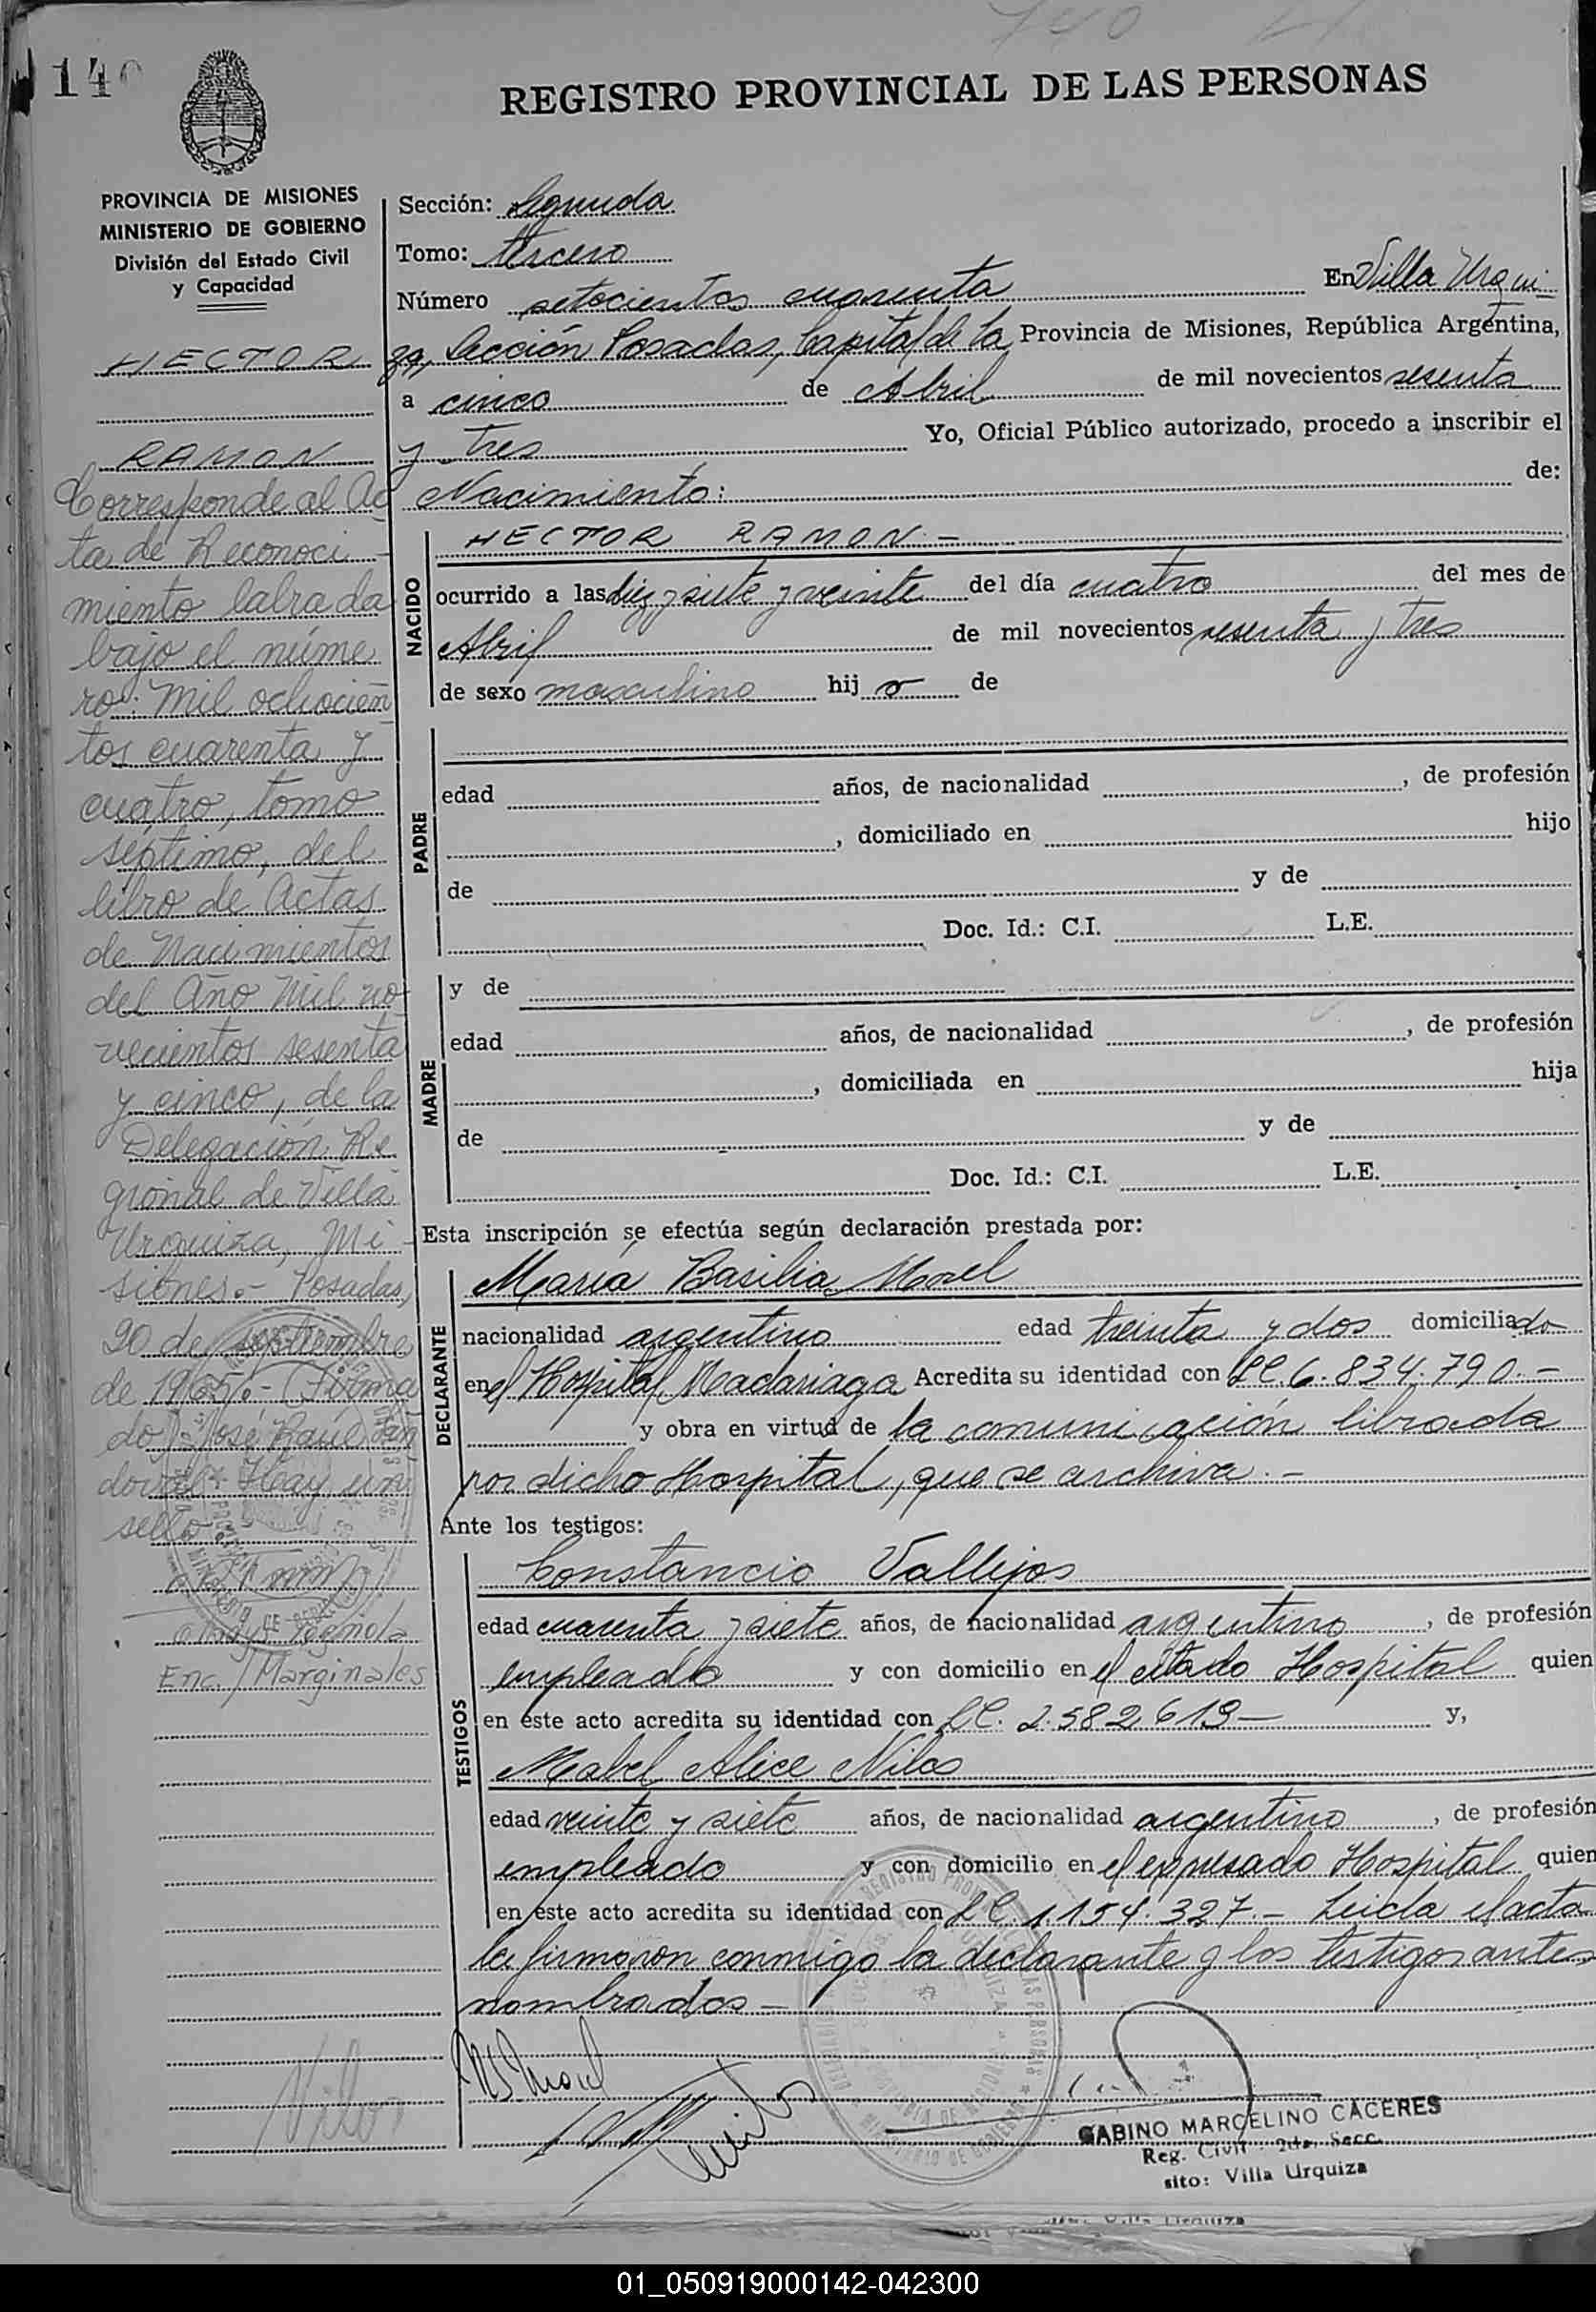 140
REGISTRO PROVINCIAL DE LAS PERSONAS
PROVINCIA DE MISIONES
MINISTERIO DE GOBIERNO
División del Estado Civil
y Capacidad
HECTOR
RAMON
Corresponde al Ac
ta de Reconoci-
miento labrada
bajo el núme
ro: Mil ochocien
tos cuarenta y
cuatro, tomo
séptimo, del
libro de Actas
de Nacimientos
del Año Mil no-
vecientos sesenta
y cinco, de la
Delegación Re
gional de Villa
Urquiza, Mi-
siones.- Posadas,
20 de septiembre
de 1965.- (Firma
do): José Raúl San
doval- Hay un
sello
Enc./Marginales
Sección: Segunda
Tomo: tercero
Número setecientos cuarenta En Villa Urqui-
za, Sección Posadas, Capital de la Provincia de Misiones, República Argentina,
a cinco de Abril de mil novecientos sesenta
y tres Yo, Oficial Público autorizado, procedo a inscribir el
Nacimiento: de:
NACIDO
HECTOR RAMON.-
ocurrido a las diez y siete y veinte del día cuatro del mes de
Abril de mil novecientos sesenta y tres
de sexo masculino hijo de
PADRE
edad años, de nacionalidad , de profesión
, domiciliado en hijo
de y de
Doc. Id.: C.I. L.E.
MADRE
y de
edad años, de nacionalidad , de profesión
, domiciliada en hija
de y de
Doc. Id.: C.I. L.E.
Esta inscripción se efectúa según declaración prestada por:
DECLARANTE
María Basilia Morel
nacionalidad argentino edad treinta y dos domiciliado
en el Hospital Madariaga Acredita su identidad con LC. 6.834.790.-
y obra en virtud de la comunicación librada
por dicho Hospital, que se archiva.-
Ante los testigos:
TESTIGOS
Constancio Vallejos
edad cuarenta y siete años, de nacionalidad argentino , de profesión
empleado y con domicilio en el citado Hospital quien
en este acto acredita su identidad con LC. 2.582.619- y,
Mabel Alice Nilos
edad veinte y siete años, de nacionalidad argentino , de profesión
empleado y con domicilio en el expresado Hospital quien
en este acto acredita su identidad con LC. 1.154.327.- Leida el acta
la firmaron conmigo la declarante y los testigos antes
nombrados-
GABINO MARCELINO CACERES
Reg. Civil 2da. Secc.
sito: Villa Urquiza
01_050919000142-042300